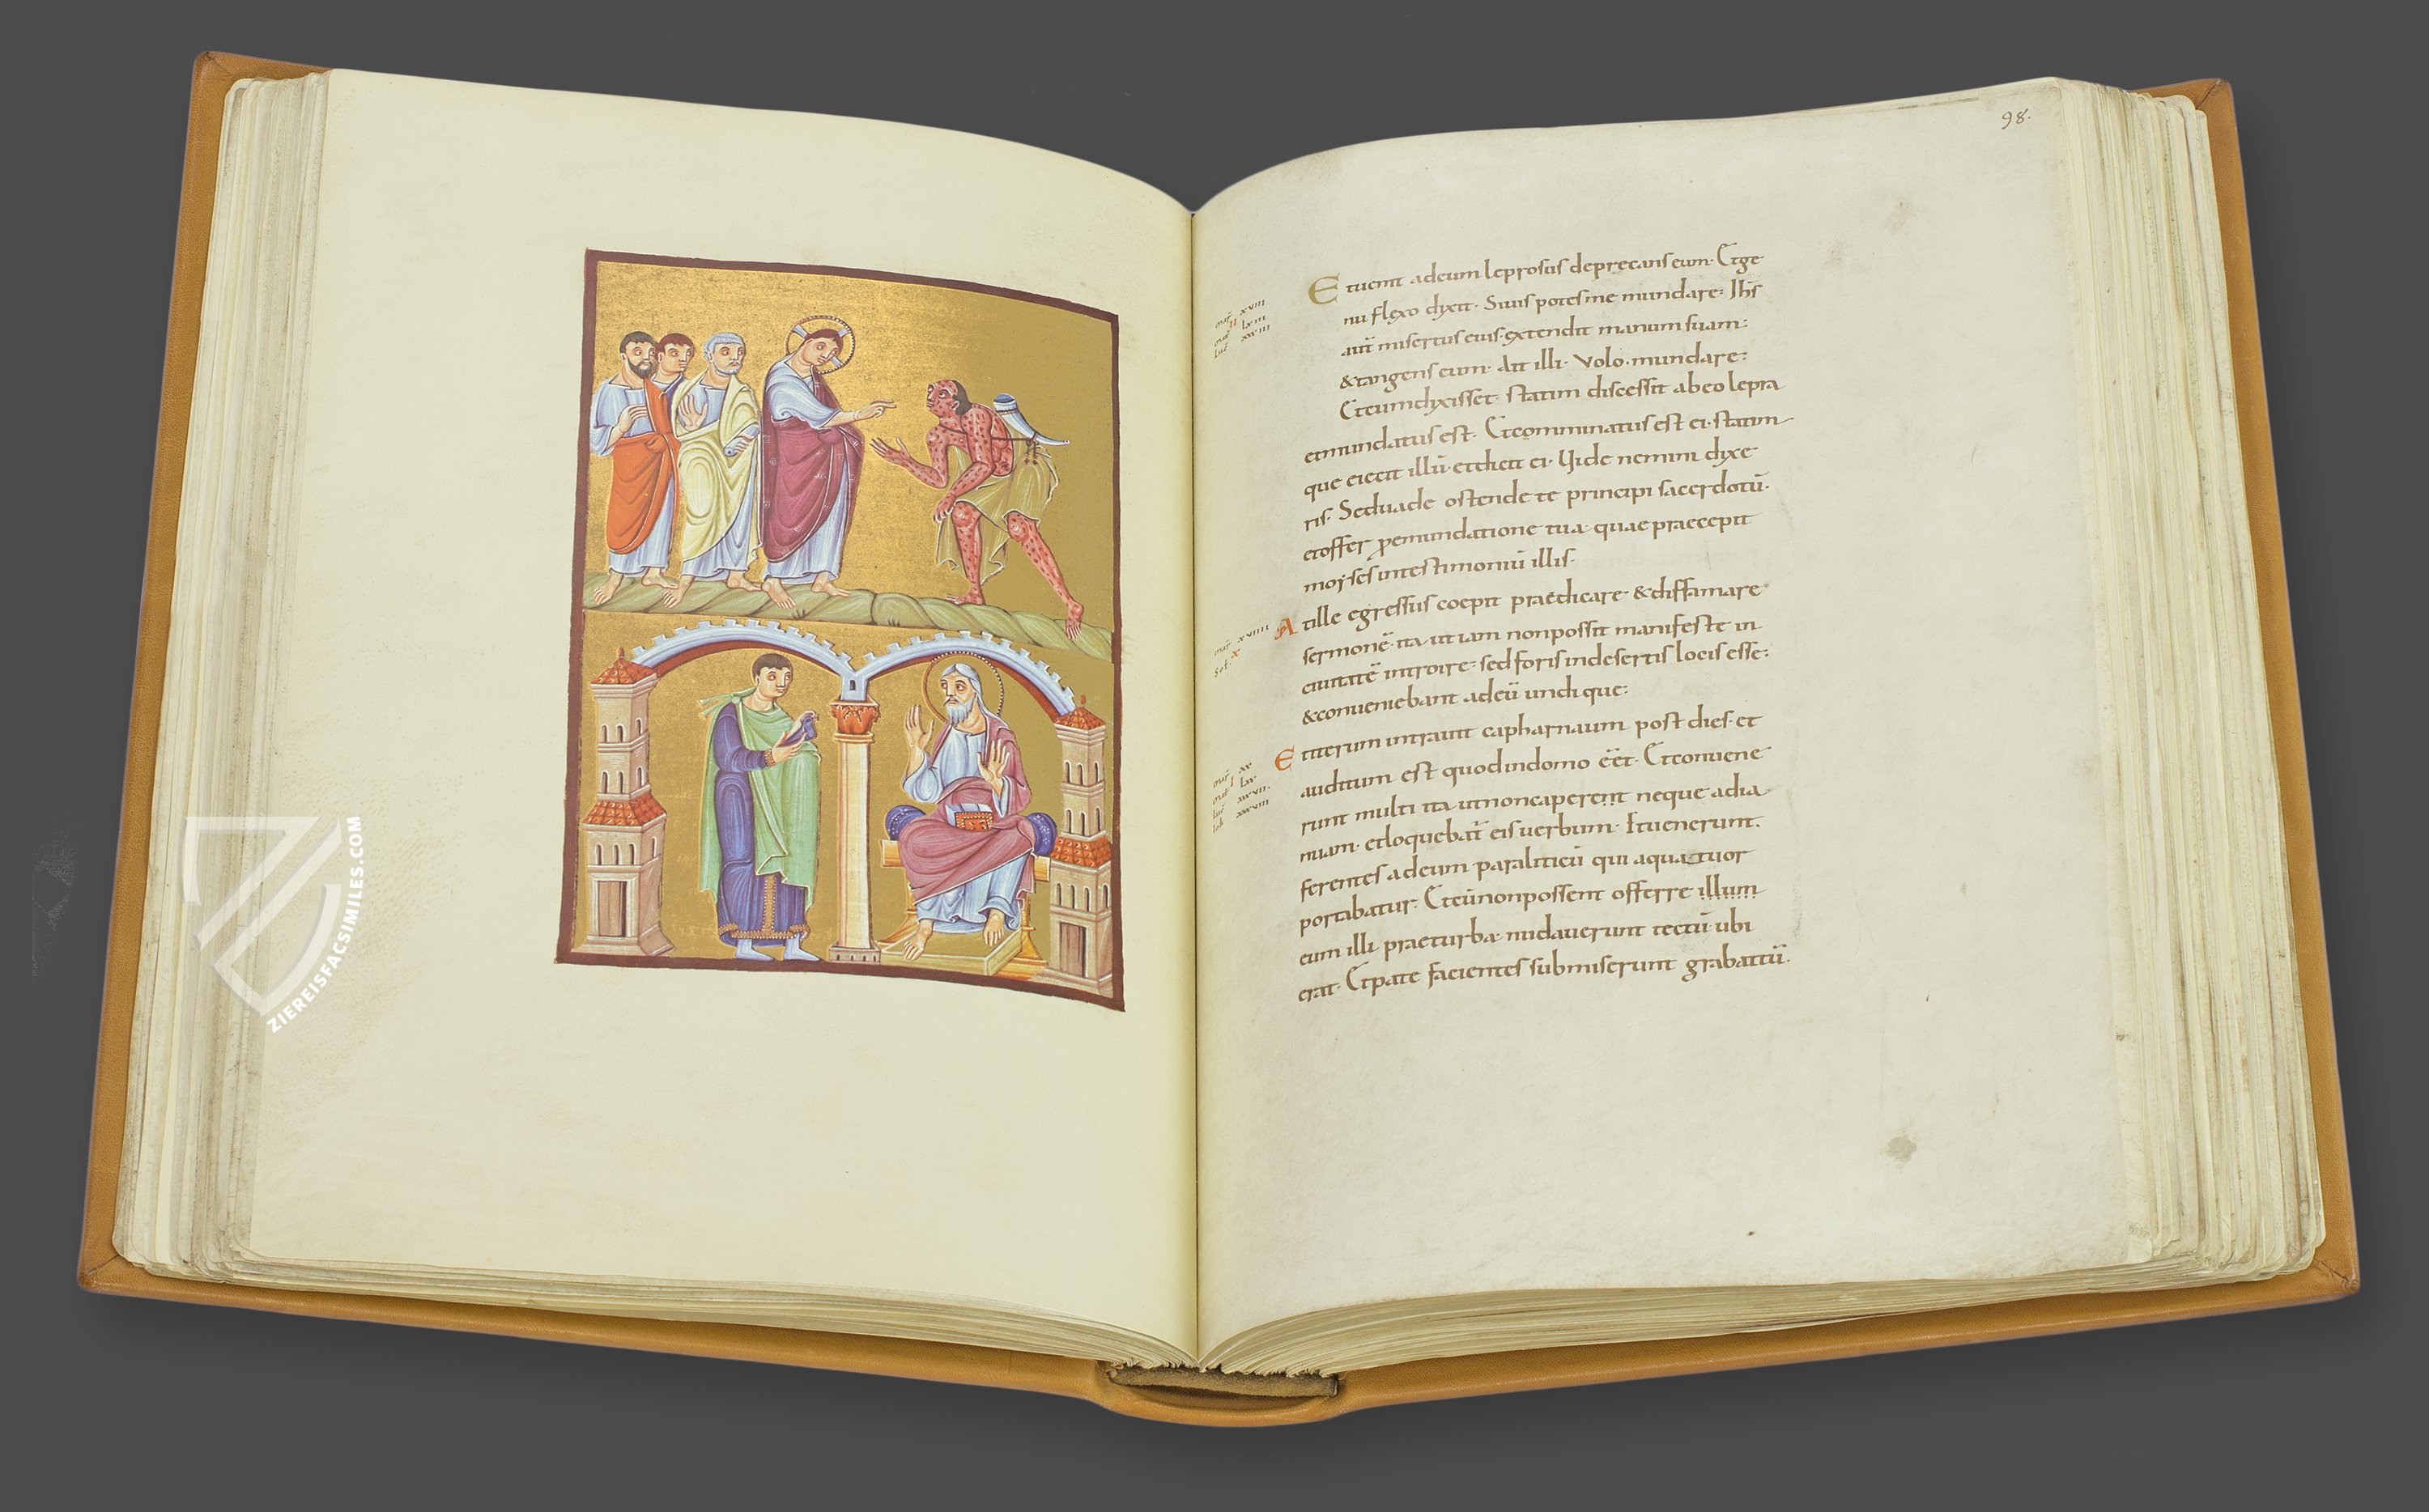 98.
E tuenit adeum leprosus deprecans eum· Etge
nu flexo dixit· Siuis potes me mundare· Ihs
aut̄ misertus eius· extendit manum suam·
&tangens eum· Ait illi· Volo· mundare·
Etcumdixisset· statim discessit abeo lepra
etmundatus est· Etcomminatus est ei· statim
que eiecit illū· etdicit ei· Uide nemini dixe
ris· Seduade ostende te principi sacerdotū·
etoffer pemundatione tua· quae praecepit
moyses intestimoniū illis·
A tille egressus coepit praedicare &diffamare
sermonē· ita ut iam nonpossit manifeste in
ciuitatē introire· sedforis indesertis locis esse·
&conueniebant adeū undique·
E titerum intrauit capharnaum post dies· et
auditum est quodindomo eēt· Etconuene
runt multi ita utnoncaperent neque adia
nuam· etloquebat̄ eis uerbum· Etuenerunt·
ferentes adeum paraliticū qui aquattuor
portabatur· Etcūnonpossent offerre illum
eum illi praeturba· nudauerunt tectū ubi
erat· Etpate facientes submiserunt grabattū·
ZIEREISFACSIMILES.COM